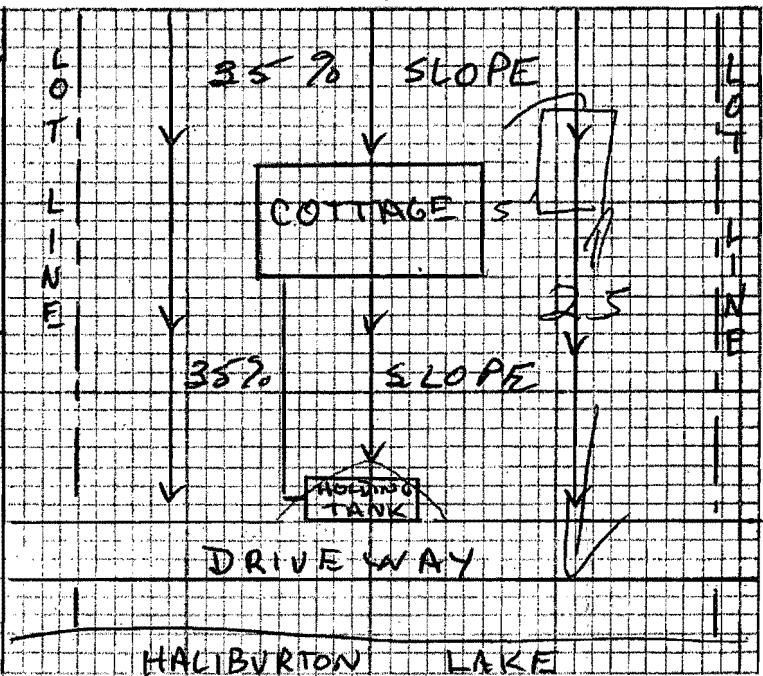 LOT LINE
35% SLOPE
LOT LINE
COTTAGE 5
25
35% SLOPE
HOLDING
TANK
DRIVEWAY
HALIBURTON LAKE